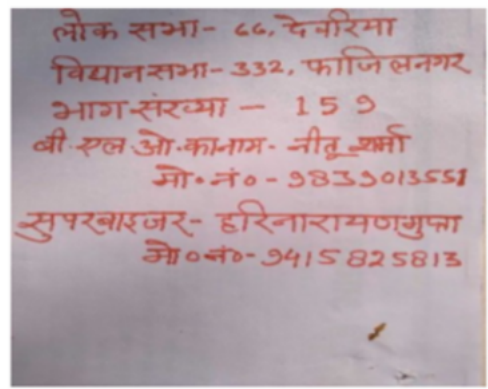 लोक सभा- ६६, देवरिया
विधानसभा- 332, फाजिलनगर
भाग संख्या - 159
बी.एल.ओ.कानाम- नीतू शर्मा
मो०नं०- 9839013551
सुपरवाइजर- हरिनारायणगुप्ता
मो०नं०- 9415825813